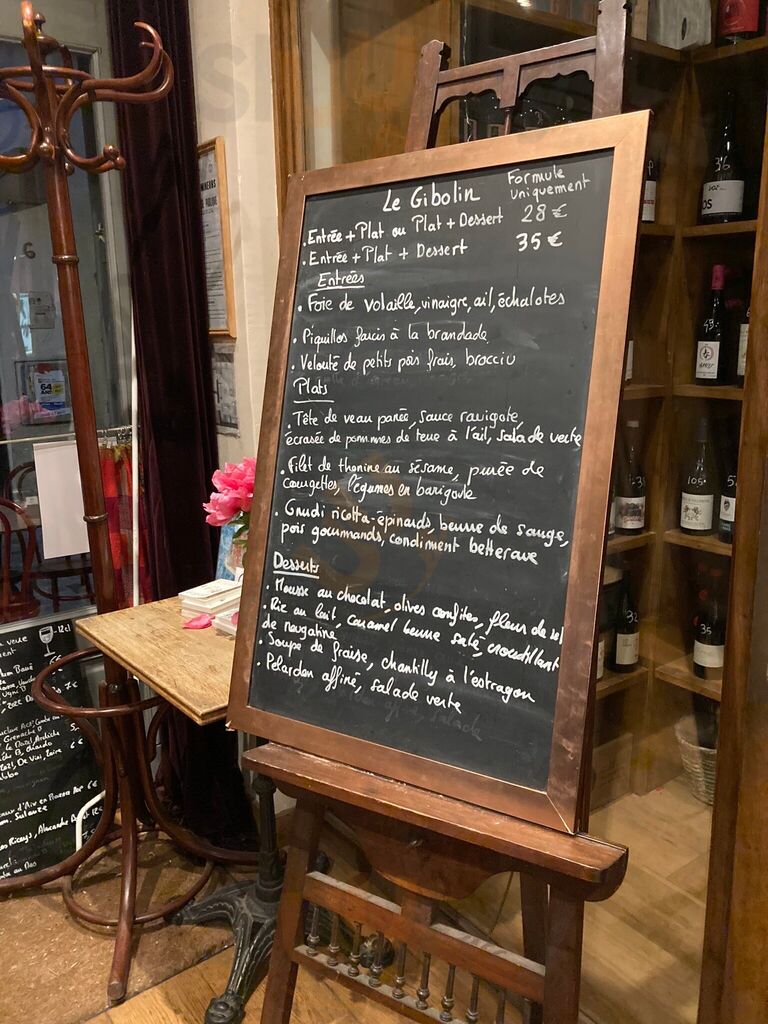 Le Gibolin
Formule
uniquement
. Entrée + Plat ou Plat + Dessert 28 €
. Entrée + Plat + Dessert 35 €
Entrées
. Foie de volaille, vinaigre, ail, échalotes
. Piquillos farcis à la brandade
. Velouté de petits pois frais, brocciu
Plats
. Tête de veau panée, sauce ravigote,
écrasée de pommes de terre à l'ail, salade verte
. Filet de thonine au sésame, purée de
courgettes, légumes en barigoule
. Gnudi ricotta-épinards, beurre de sauge,
pois gourmands, condiment betterave
Desserts
. Mousse au chocolat, olives confites, fleur de sel
. Riz au lait, caramel beurre salé, croustillant
de nougatine
. Soupe de fraise, chantilly à l'estragon
. Pelardon affiné, salade verte
64
36
49
105
35